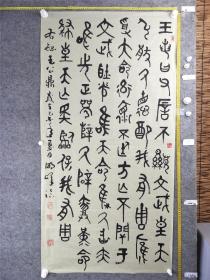 王若曰父厝不顯文武皇天
弘厭厥德配我有周膺
受大命率懷不廷方亡不閈于
文武耿光唯天將集厥命亦唯
先正襄辥厥辟勞堇大命
肆皇天亡斁臨保我有周
毛公鼎